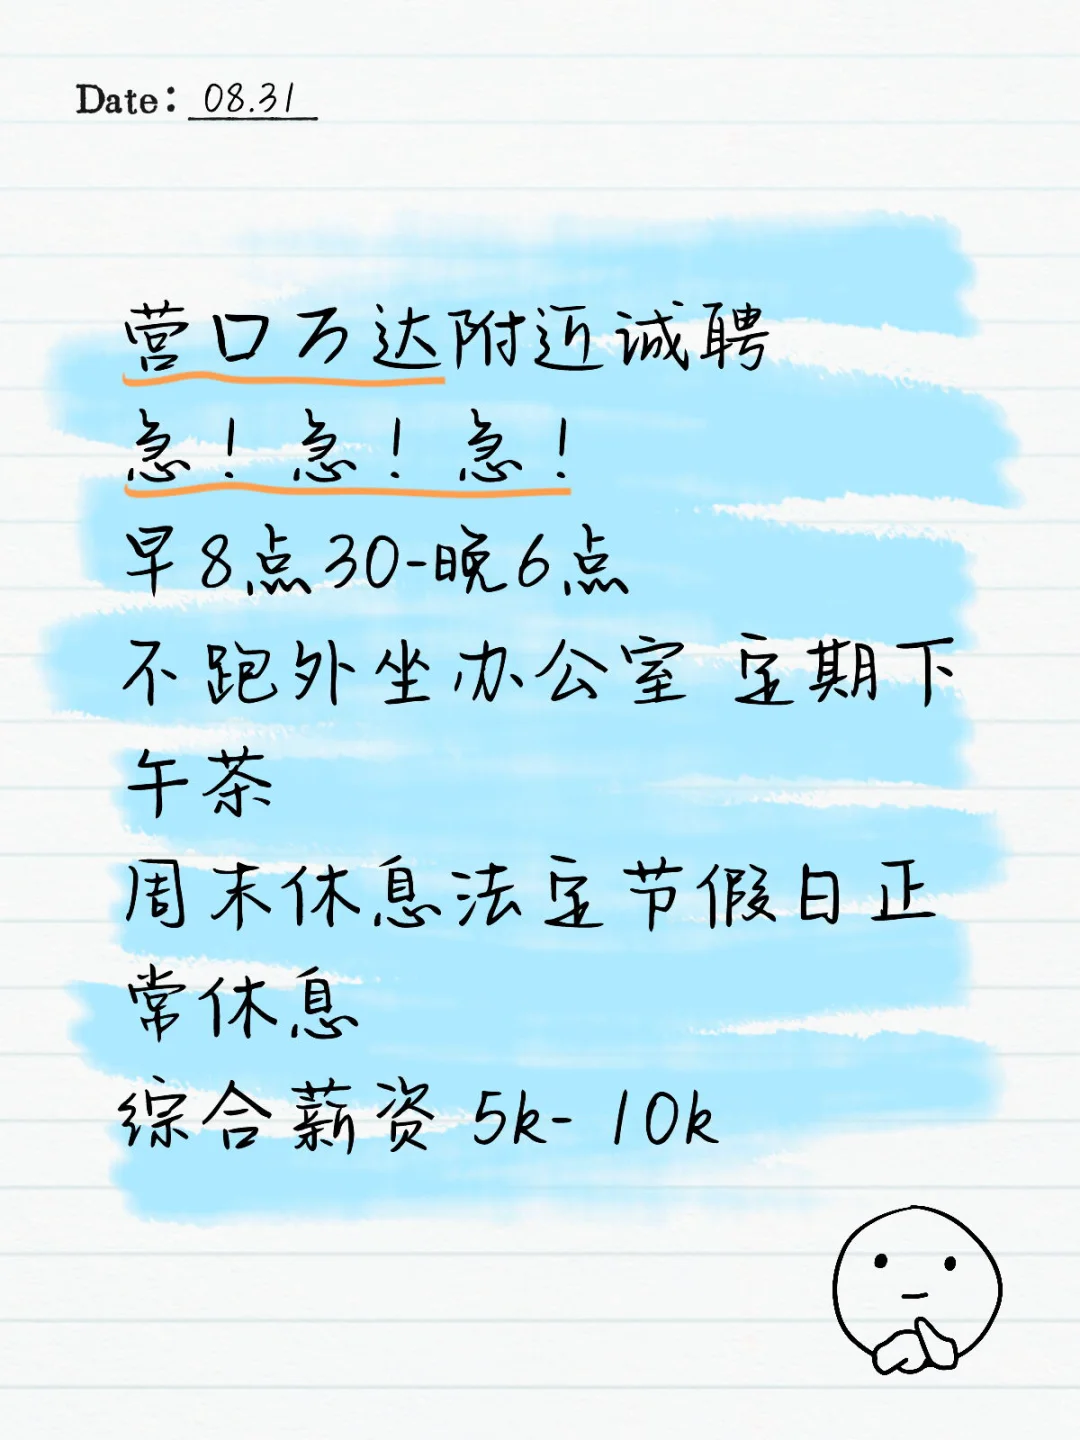 Date: 08.31
营口万达附近诚聘
急！急！急！
早8点30-晚6点
不跑外坐办公室 定期下
午茶
周末休息法定节假日正
常休息
综合薪资 5k- 10k